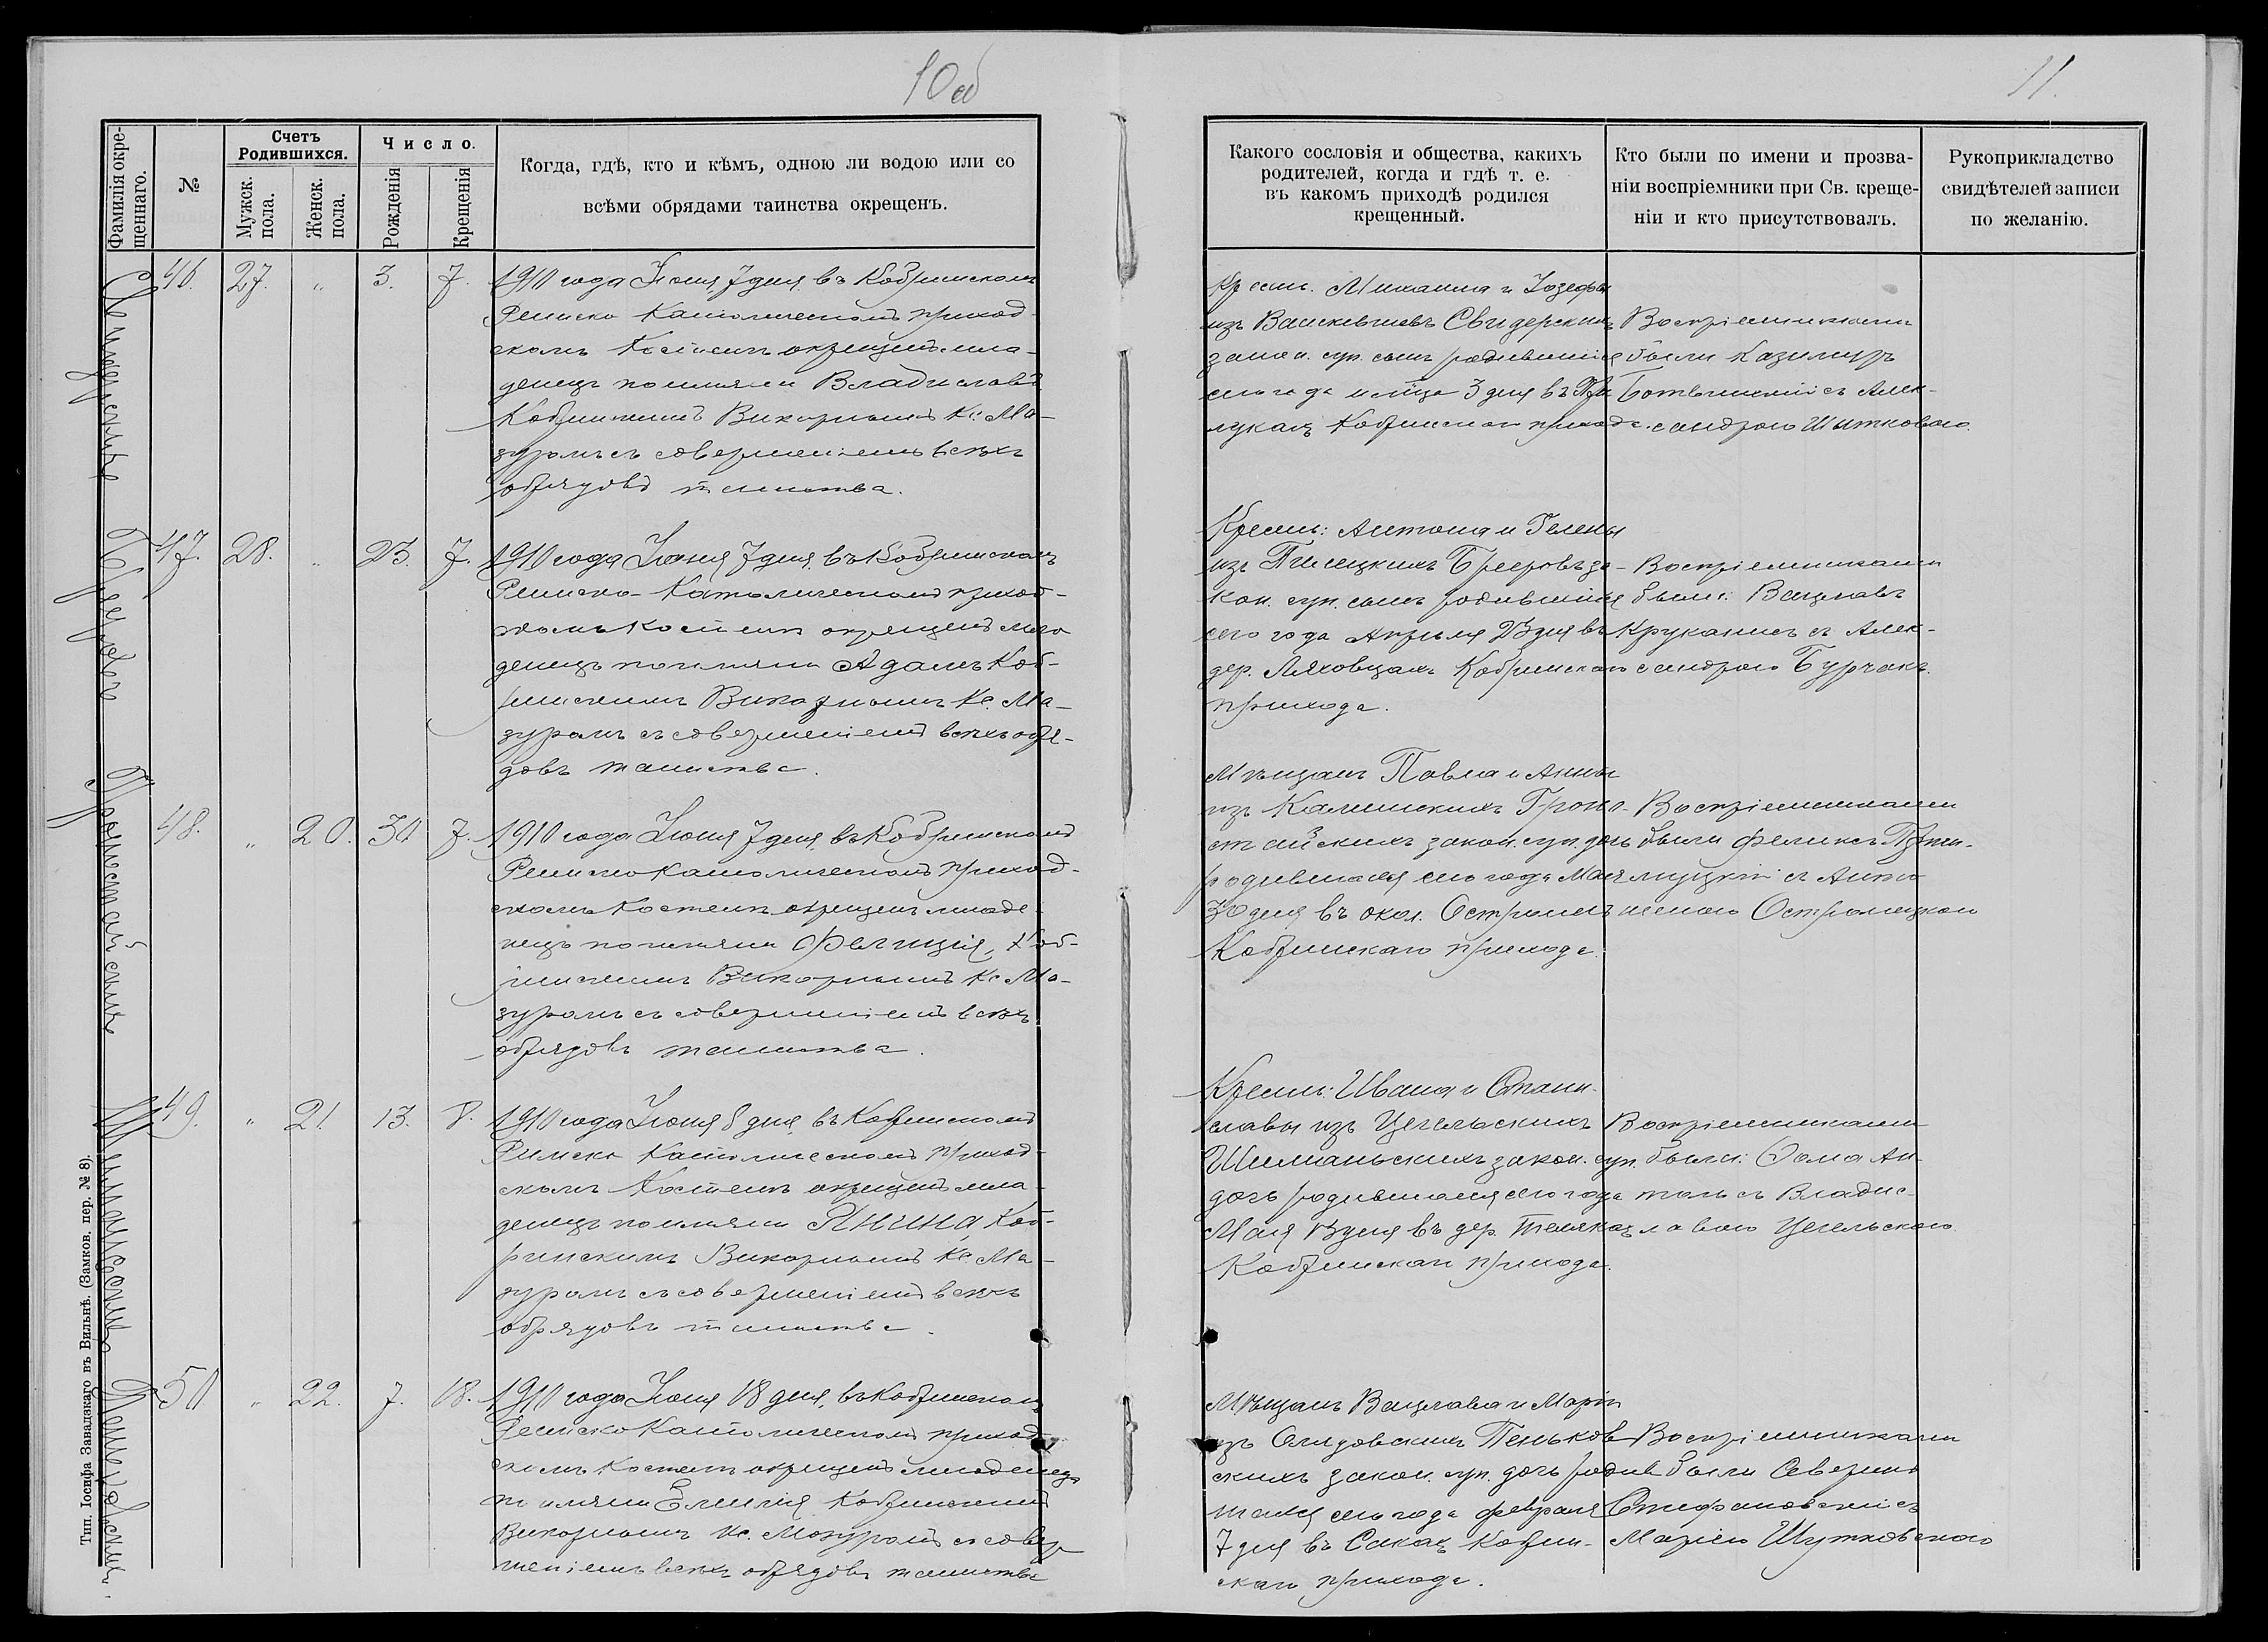 10об
11.
Фамилія окре-
щеннаго.
№
Счетъ
Родившихся.
Мужск.
пола.
Женск.
пола.
Число.
Рожденія
Крещенія
Когда, гдѣ, кто и кѣмъ, одною ли водою или со
всѣми обрядами таинства окрещенъ.
Какого сословія и общества, какихъ
родителей, когда и гдѣ т. е.
въ какомъ приходѣ родился
крещенный.
Кто были по имени и прозва-
ніи воспріемники при Св. креще-
ніи и кто присутствовалъ.
Рукоприкладство
свидѣтелей записи
по желанію.
46. 27. „ 3. 7.
1910 года Іюня 7 дня въ Кобринскомъ
Римско Католическомъ приход-
скомъ Костелѣ окрещенъ мла-
денецъ по имени Владиславъ
Кобринскимъ Викарнымъ Кс. Ма-
зуромъ съ совершеніемъ всѣхъ
обрядовъ таинства.
Крест. Михаила и Іозефы
изъ Свидерскихъ
закон. суп. сынъ родившійся
сего года 3 дня въ
Кобринскаго прихода.
Воспріемниками
были Казимиръ
съ Алек-
сандрою
47. 28. „ 23. 7.
1910 года Іюня 7 дня въ Кобринскомъ
Римско-Католическомъ приход-
скомъ Костелѣ окрещенъ мла-
денецъ по имени Адамъ Коб-
ринскимъ Викарнымъ Кс. Ма-
зуромъ съ совершеніемъ всѣхъ обря-
довъ таинства.
Крест: Антона и Гелены
изъ за-
кон. суп. сынъ родившійся
сего года Апрѣля 23 дня въ
дер. Ляховцахъ Кобринскаго
прихода.
Воспріемниками
были: Вацлавъ
съ Алек-
сандрою Бурчакъ
48. „ 20. 30 7.
1910 года Іюня 7 дня въ Кобринскомъ
Римско Католическомъ приход-
скомъ Костелѣ окрещенъ младе-
нецъ по имени Фелиція, Коб-
ринскимъ Викарнымъ Кс. Ма-
зуромъ съ совершеніемъ всѣхъ
обрядовъ таинства.
Мѣщанъ Павла и Анны
изъ
закон. суп. дочь
родившаяся сего года Мая
30 дня въ окол.
Кобринскаго прихода.
Воспріемниками
были Феликсъ
съ Анто
ниною
49. „ 21. 13. 8.
1910 года Іюня 8 дня въ Кобринскомъ
Римско Католическомъ приход-
скомъ Костелѣ окрещенъ мла-
денецъ по имени Янина, Коб-
ринскимъ Викарнымъ Кс. Ма-
зуромъ съ совершеніемъ всѣхъ
обрядовъ таинства.
Крест: Ивана и Стани-
славы изъ Цегельскихъ
Шиманьскихъ закон. суп.
дочь родившаяся сего года
Мая 13 дня въ дер.
Кобринскаго прихода.
Воспріемниками
были: Фома Ан-
тонъ съ Владис-
лавою Цегельскою
50 „ 22. 7. 18.
1910 года Іюня 18 дня, въ Кобринскомъ
Римско Католическомъ приход-
скомъ Костелѣ окрещенъ младенецъ
по имени Емилія Кобринскимъ
Викарнымъ Кс. Мазуромъ съ совер-
шеніемъ всѣхъ обрядовъ таинства
Мѣщанъ Вацлава и Маріи
изъ Пеньков-
скихъ закон. суп. дочь родив-
шаяся сего года февраля
7 дня въ Кобрин-
скаго прихода.
Воспріемниками
были Северинъ
Стефановскій съ
Маріею Шутковскою
Тип. Іосифа Завадзкаго въ Вильнѣ. (Замков. пер. № 8).